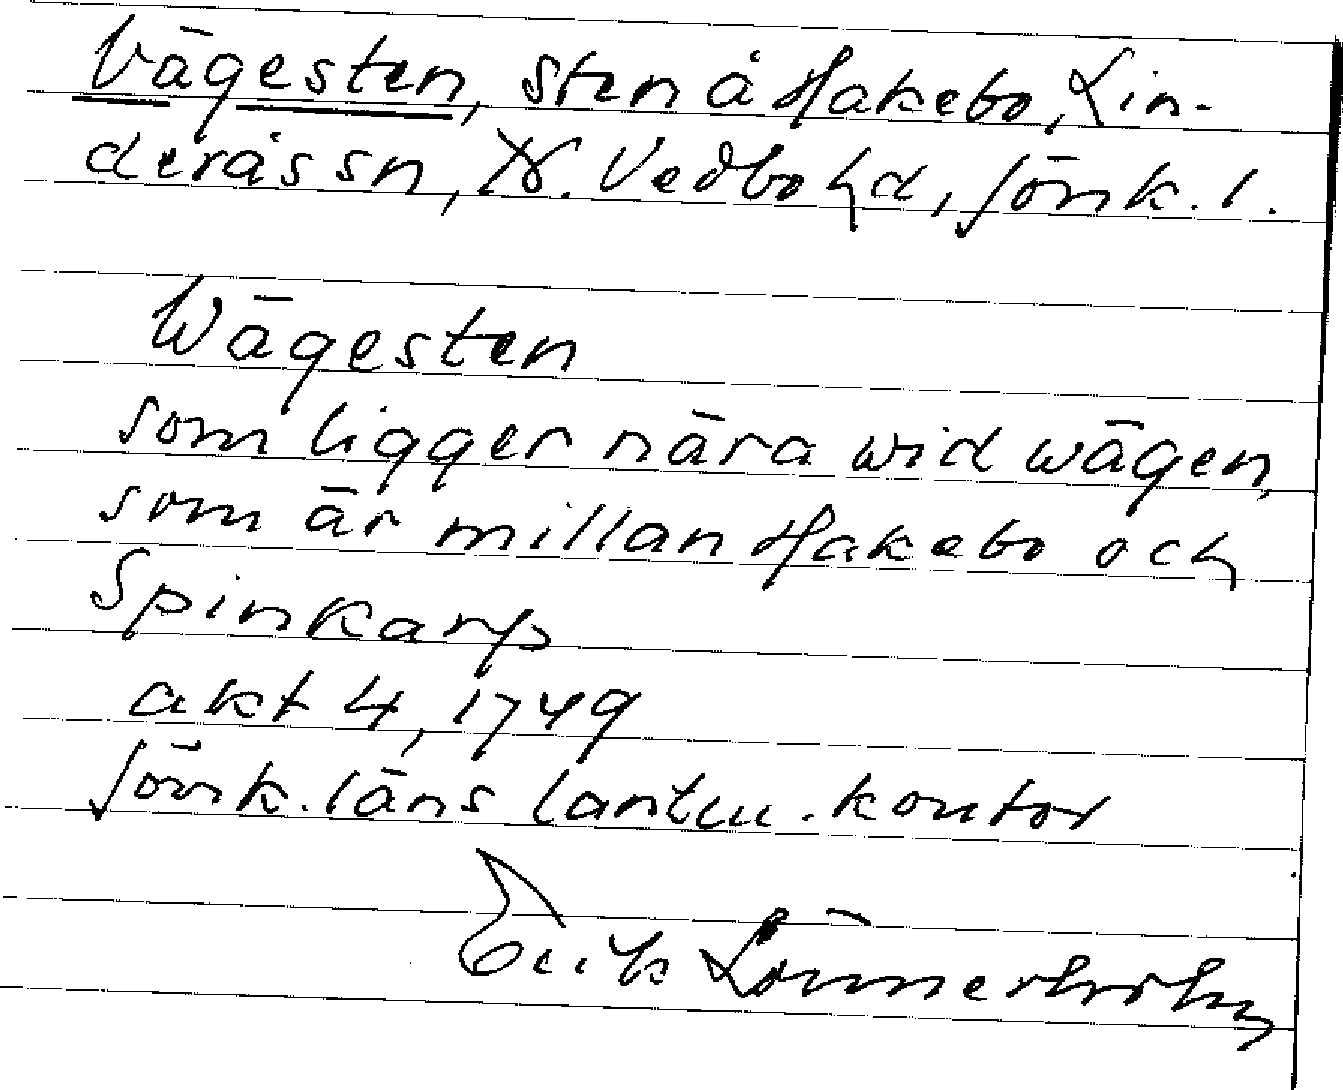 Vägesten, sten å Hakebo, Lin-
deråssn, N. Vedbo hd, Jönk. l.
Wägesten
som ligger nära wid wägen,
som är millan Hakebo och
Spinkarp
akt 4, 1749
Jönk. läns lantm. kontor
Erik Lönnerholm